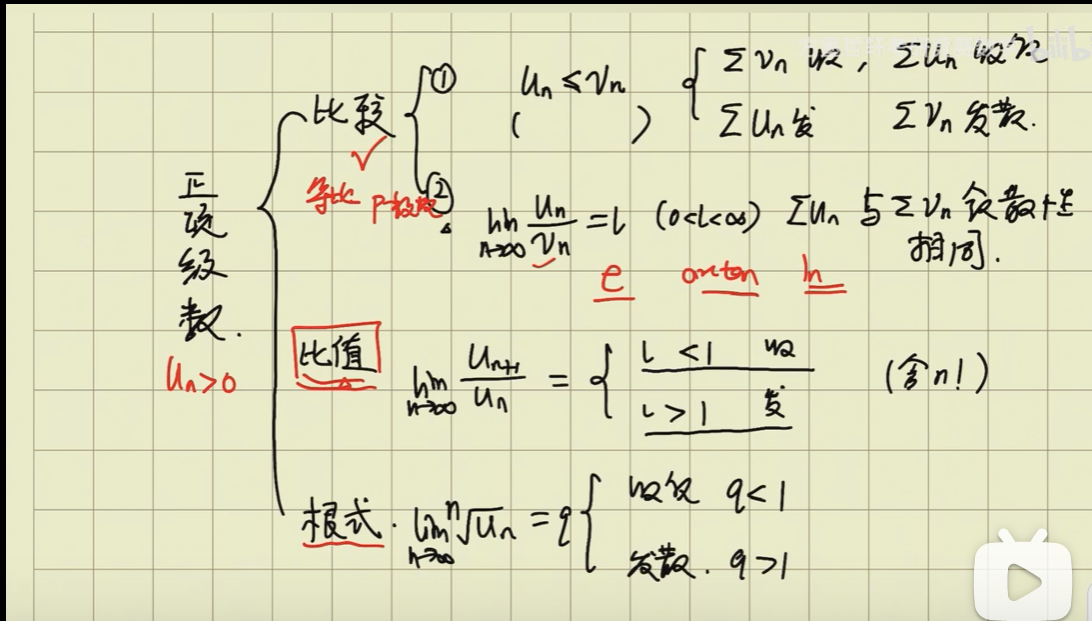 正项级数.
u_n>0
比较
等比 p-级数
① u_n ≤ v_n
( )
Σv_n 收, Σu_n 收敛
Σu_n 发 Σv_n 发散.
② lim n→∞ u_n/v_n = l (0<l<∞) Σu_n 与 Σv_n 敛散性
相同.
e arctan ln
比值 lim n→∞ u_{n+1}/u_n =
l <1 收
l >1 发
(含n!)
根式. lim n→∞ ⁿ√u_n = q
收敛 q<1
发散. q>1
bilibili